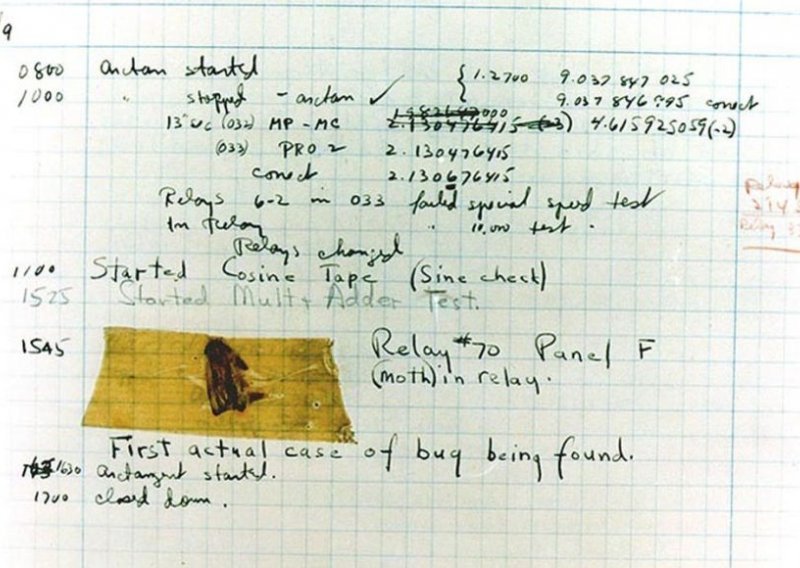 9
0800 arctan started { 1.2700 9.037 847 025
1000 " stopped - arctan ✓ 9.037 846 795 conect
13" uc (032) MP - MC 2.130476415 (-3) 4.615925059(-2)
(033) PRO 2 2.130476415
conect 2.130676415
Relays 6-2 in 033 failed special speed test
In Relay " 10,000 test.
Relays changed
1100 Started Cosine Tape (Sine check)
1525 Started Mult + Adder Test.
1545 Relay #70 Panel F
(moth) in relay.
First actual case of bug being found.
1630 arctangent started.
1700 closed down.
Relay